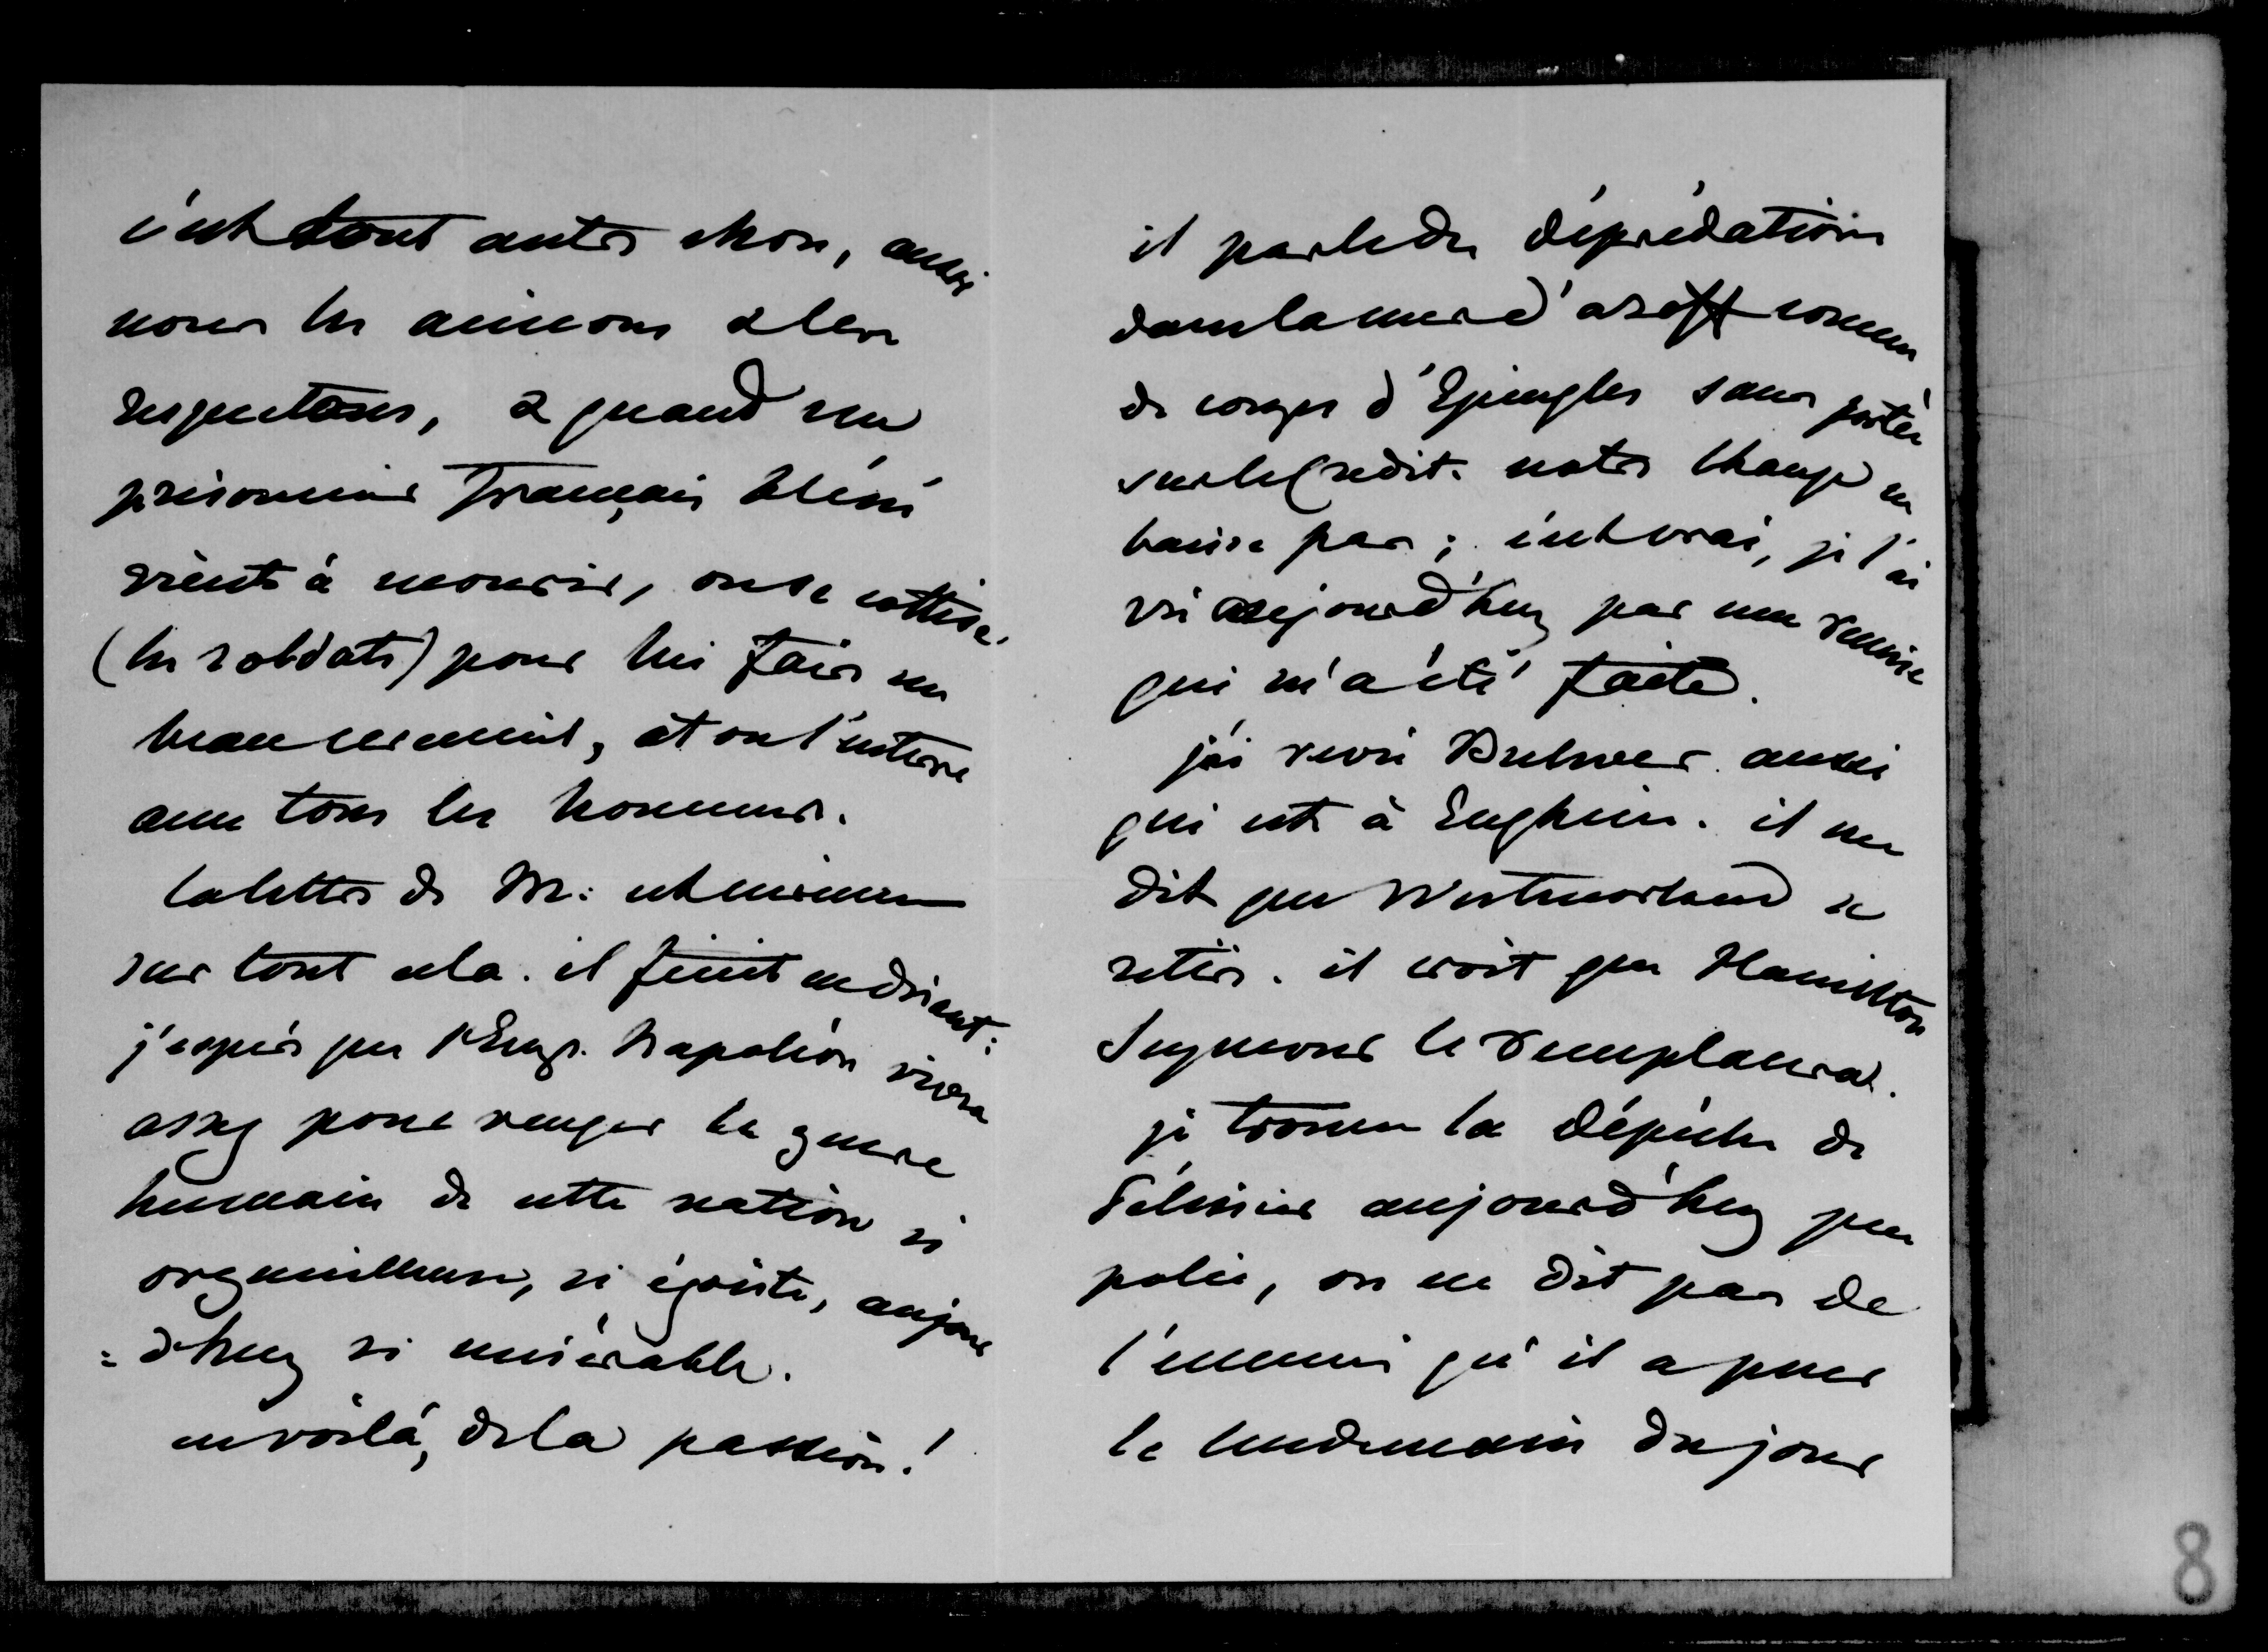 c'est tout autre chose, aussi
nous les aimons & les
respectons, & quand un
prisonnier français blessé
vient à mourir, on se cottise
(les soldats) pour lui faire un
beau cercueil, et on l'enterre
avec tous les honneurs.
la lettre de M: est curieuse
sur tout cela. il finit en disant:
j'espère que l'Emp. Napoléon vivra
assez pour venger le genre
humain de cette nation si
orgueilleuse, si égoiste, aujour
=d'huy si misérable.
en voilà, de la passion!
il parle des déprédations
dans la mer d'azoff comme
de coups d'Epingles sans portée
sur le Credit. notre change ne
baisse pas; c'est vrai, je l'ai
vu aujourd'huy par une remise
qui m'a été faite.
j'ai revu Bulwer aussi
qui est à Enghien. il me
dit que Westmorland se
retire. il croit que Hamilton
Seymour le remplacera.
je trouve la dépêche de
Pélissier aujourd'huy peu
polie, on ne dit pas de
l'ennemi qu'il a peur
le lendemain du jour
8